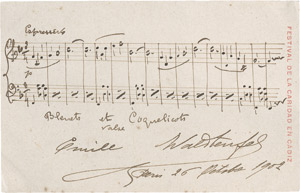 Espressivo
p
Bleuets et Coquelicots
valse
Emile Waldteufel
Paris 26 Octobre 1902
FESTIVAL DE LA CARIDAD EN CADIZ